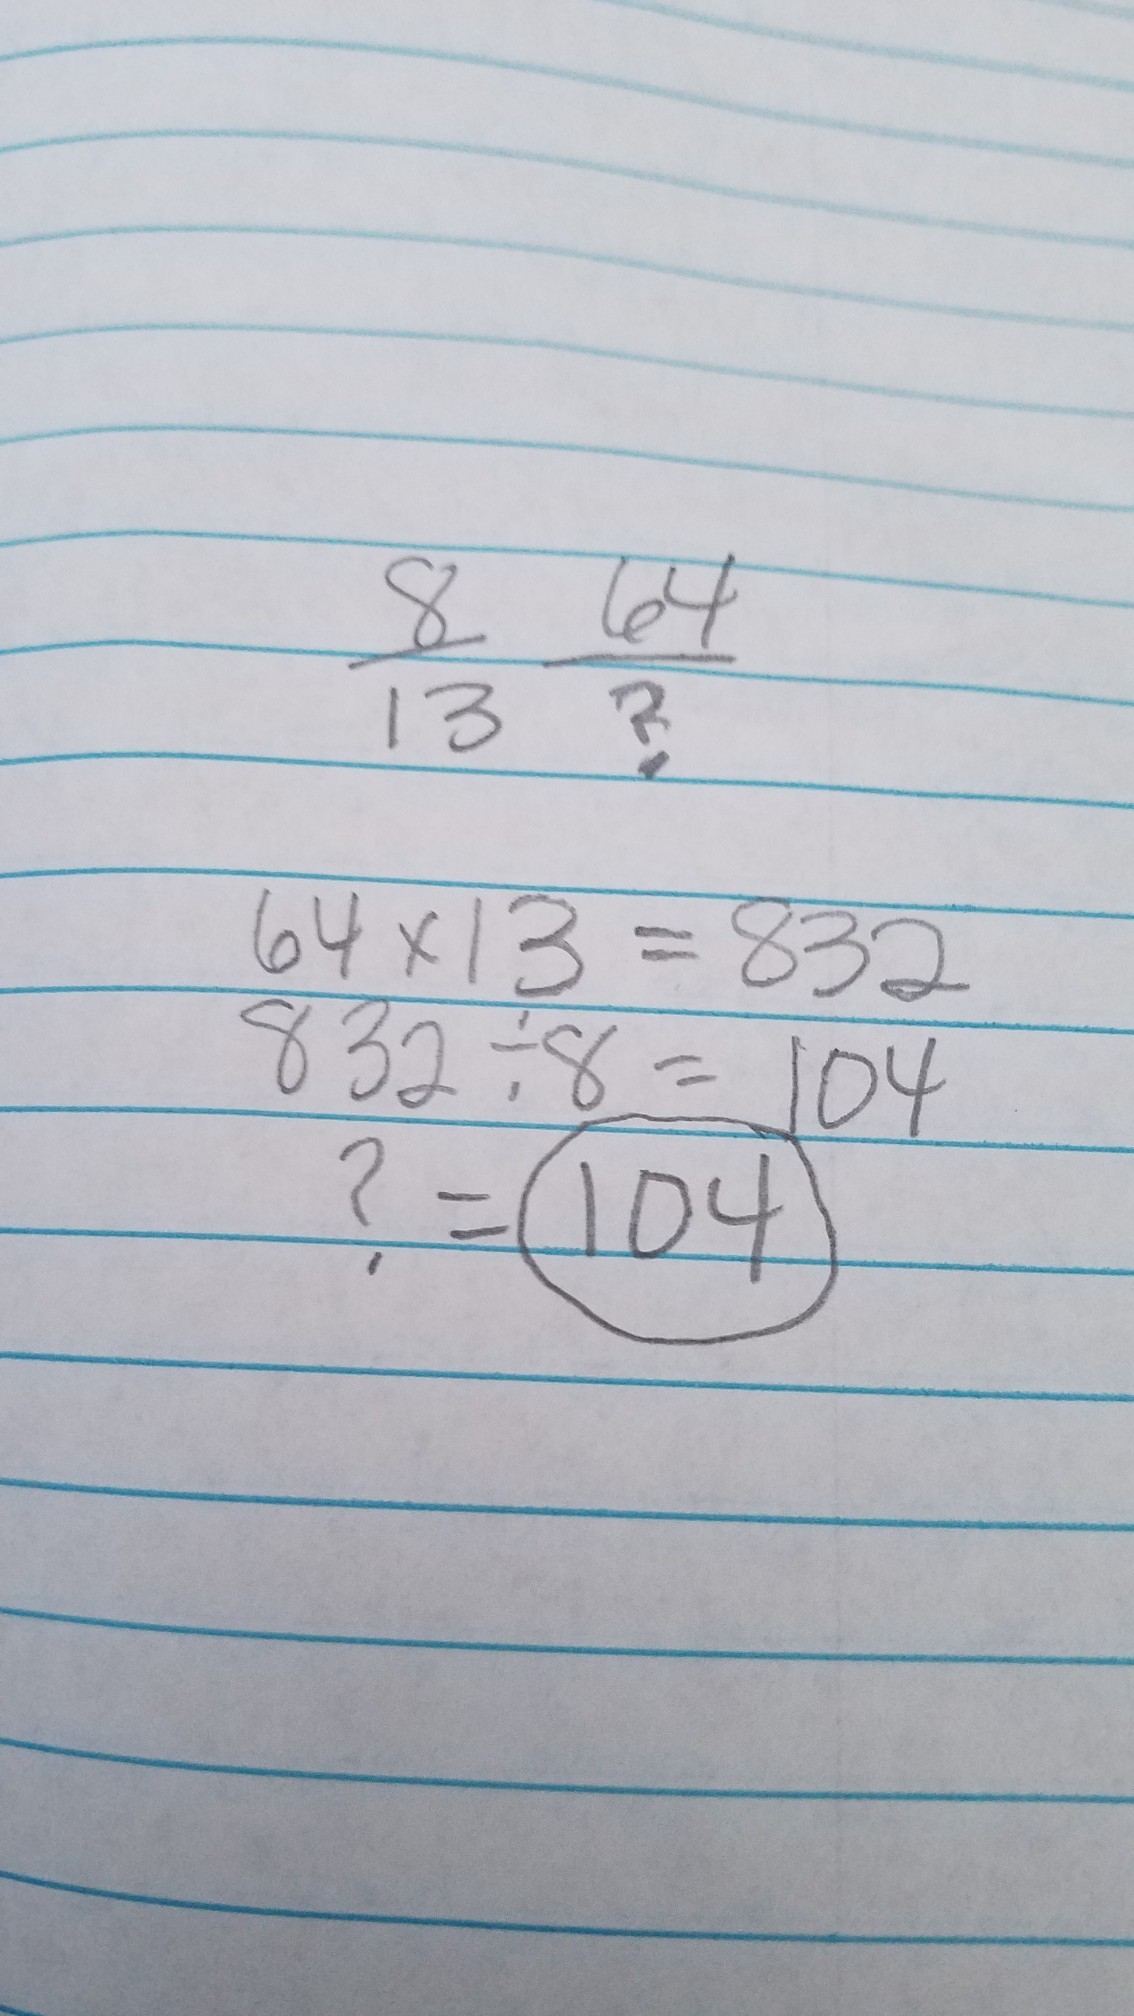 8 64
13 ?
64 x 13 = 832
832 ÷ 8 = 104
? = 104